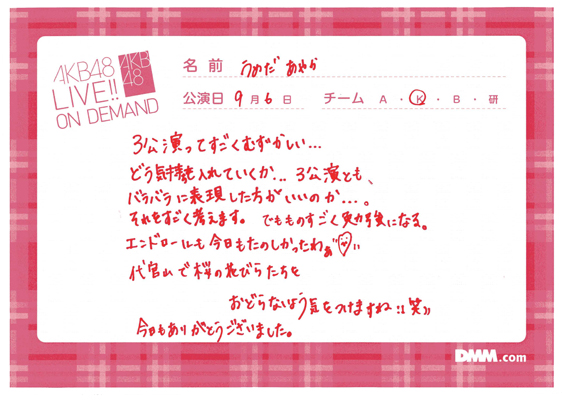 AKB48
LIVE!!
ON DEMAND
AKB
48
名前 うめだ あやか
公演日 9月6日 チーム A・K・B・研
3公演ってすごくむずかしい…
どう気持を入れていくか… 3公演とも、
バラバラに表現した方がいいのか…。
それをすごく考えます。 でもものすごく勉強になる。
エンドロールも今日もたのしかったわぁ"
代官山で桜の花びらたちを
おどらないよう気をつけますね!!笑))
今日もありがとうございました。
DMM.com